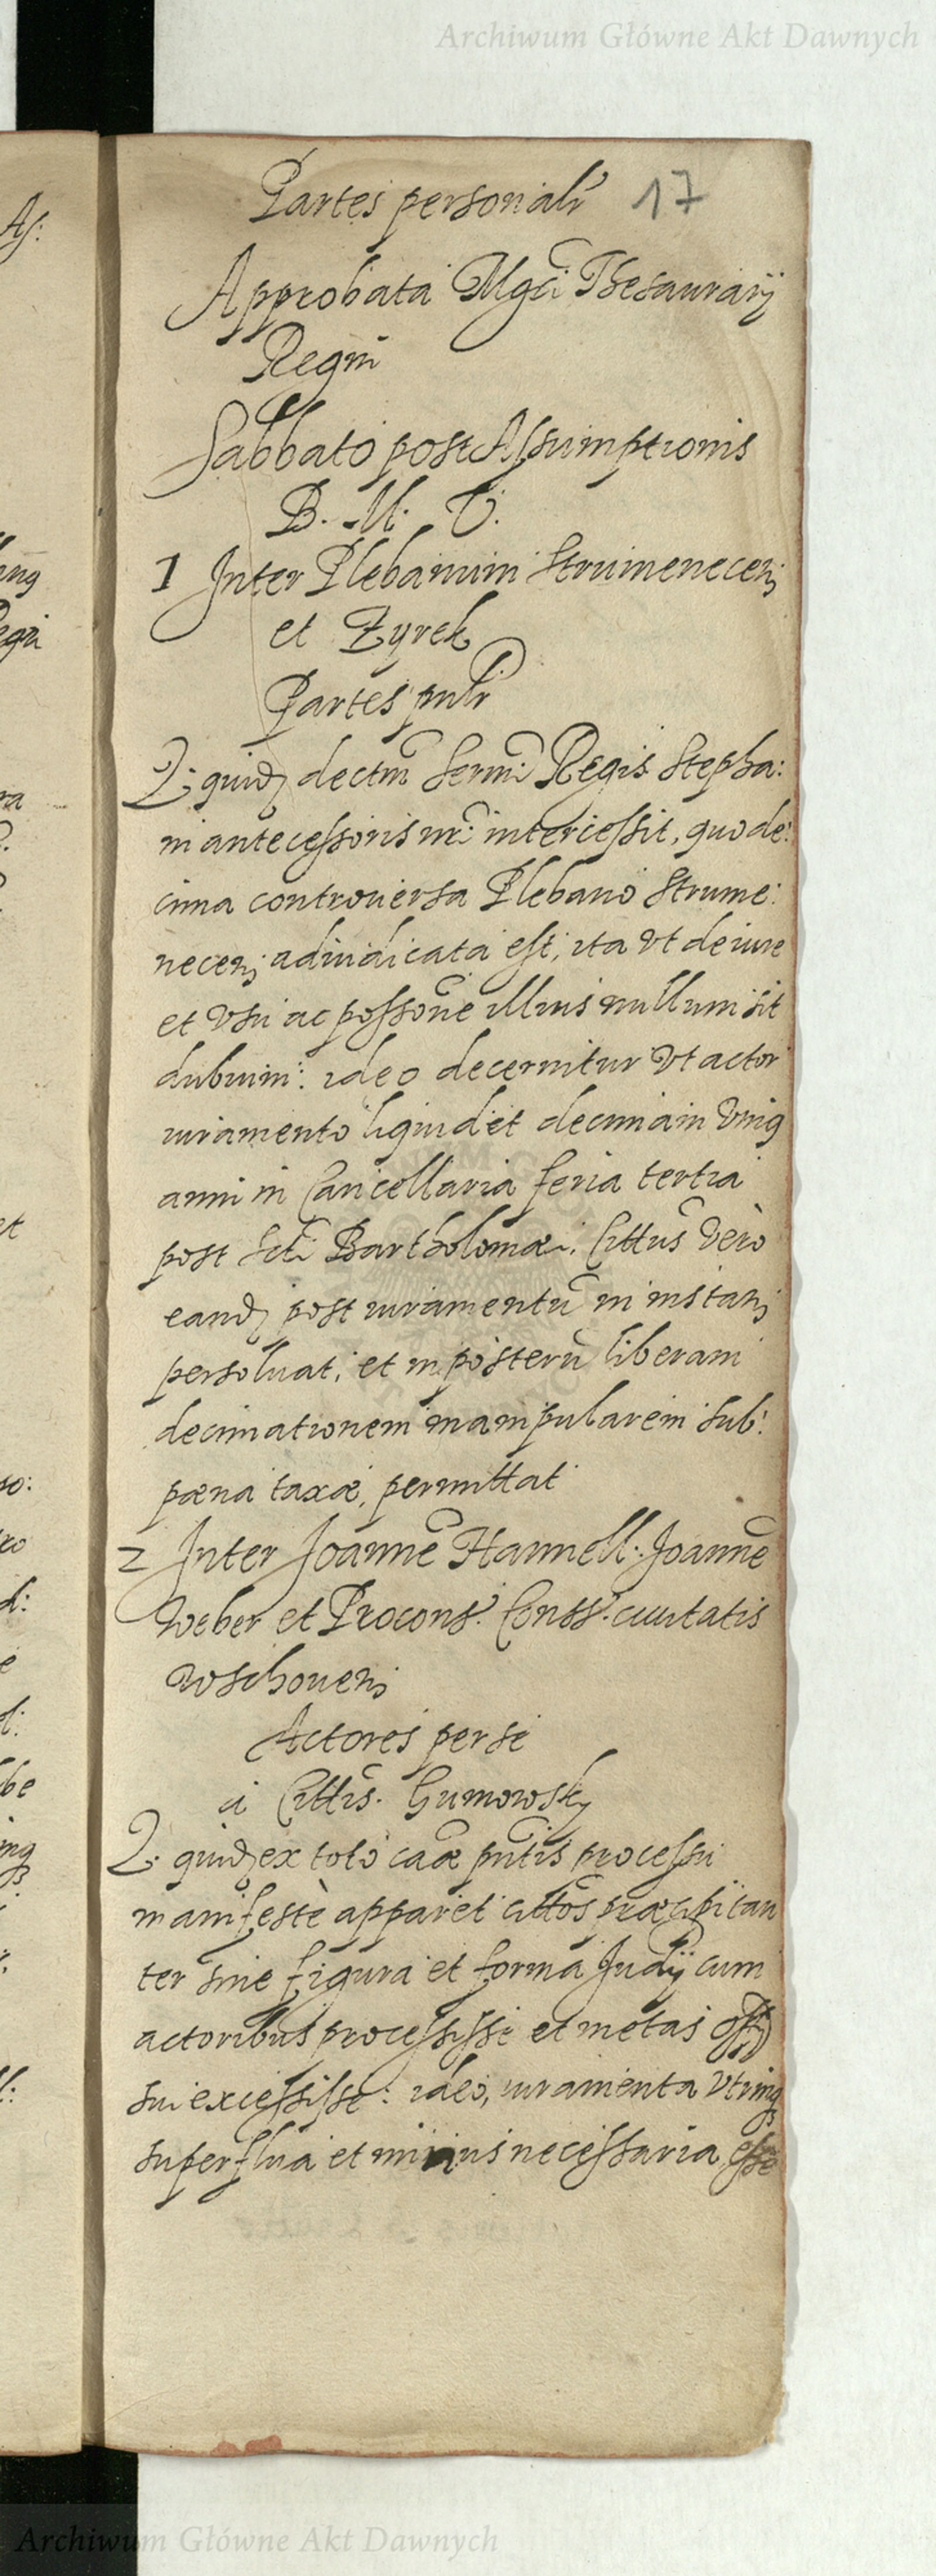 Archiwum Główne Akt Dawnych
Partes personalr 17
Approbata Mgci Thesaurarij
Regni
Sabbato post Assumptionis
B. M. V.
1 Inter Plebanum Strumenecen;
et Zyrek
Partes pntr
Q. quid; dectm Sermi Regis Stepha:
ni antecessoris nri intercessit, quo de:
cima controversa Plebano Strume:
necen; adiudicata est, ita vt de iure
et vsu ac possone illius nullum sit
dubium: ideo decernitur vt actor
iuramento liquidet decimam vnig
anni in Cancellaria feria tertia
post Scti Bartholomæi. Cittus vero
eand; post iuramentu in instan;
persoluat, et in posteru liberam
decimationem manipularem sub:
pæna taxæ, permittat
2 Inter Joanne Hannell. Joanne
Weber et Procons. Conss. ciuitatis
Wschouen;
Actores per se
a Cittis. Gumowsky
Q. quid; ex toto caæ pntis processu
manifestè apparet cittos præcipitan
ter sine figura et forma Judij cum
actoribus processisse et metas offi
sui excessisse: ideo, iuramenta vtrinq;
superflua et minus necessaria esse
As:
ing
ra
et
so:
d:
e
l:
be
Archiwum Główne Akt Dawnych